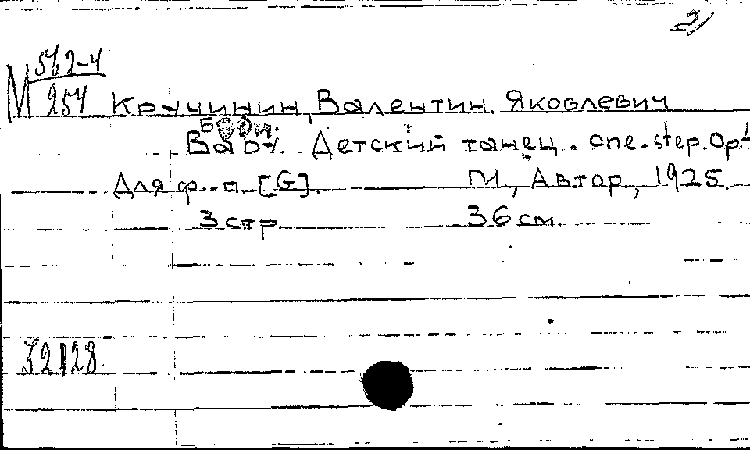 2)
М 562-4
254
Кручинин, Валентин Яковлевич
Baby. Детский танец. one-step. Op.
Для ф.-п. [G]. М., Автор, 1925.
3 стр 36 см.
32128